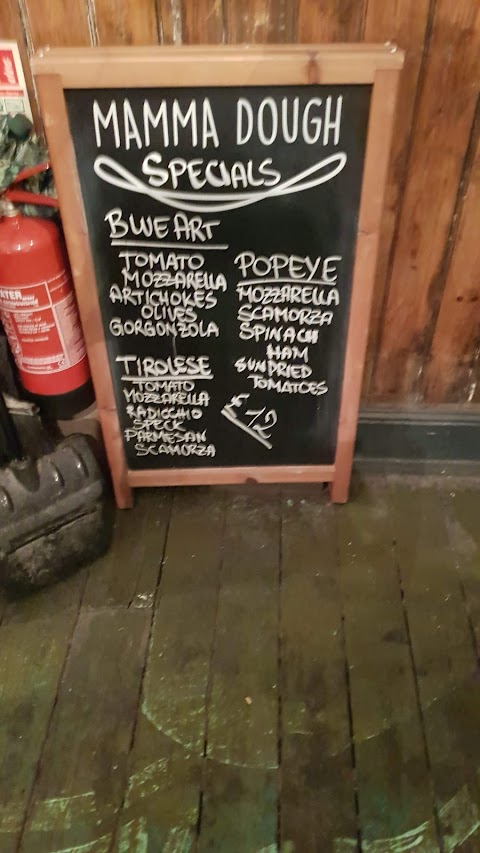 MAMMA DOUGH
SPECIALS
BLUE ART
TOMATO
MOZZARELLA
ARTICHOKES
OLIVES
GORGONZOLA
TIROLESE
TOMATO
MOZZARELLA
RADICCHIO
SPECK
PARMESAN
SCAMORZA
POPEYE
MOZZARELLA
SCAMORZA
SPINACH
HAM
SUNDRIED
TOMATOES
12
WATER